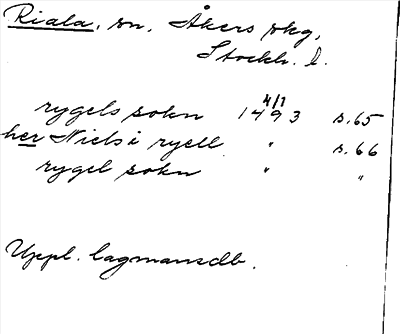 Riala, sn, Åkers skg,
Stockh. l.
4/7
rygels sokn 1493 s. 65
her Niels i ryell " s. 66
rygel sokn " "
Uppl. lagmansdb.